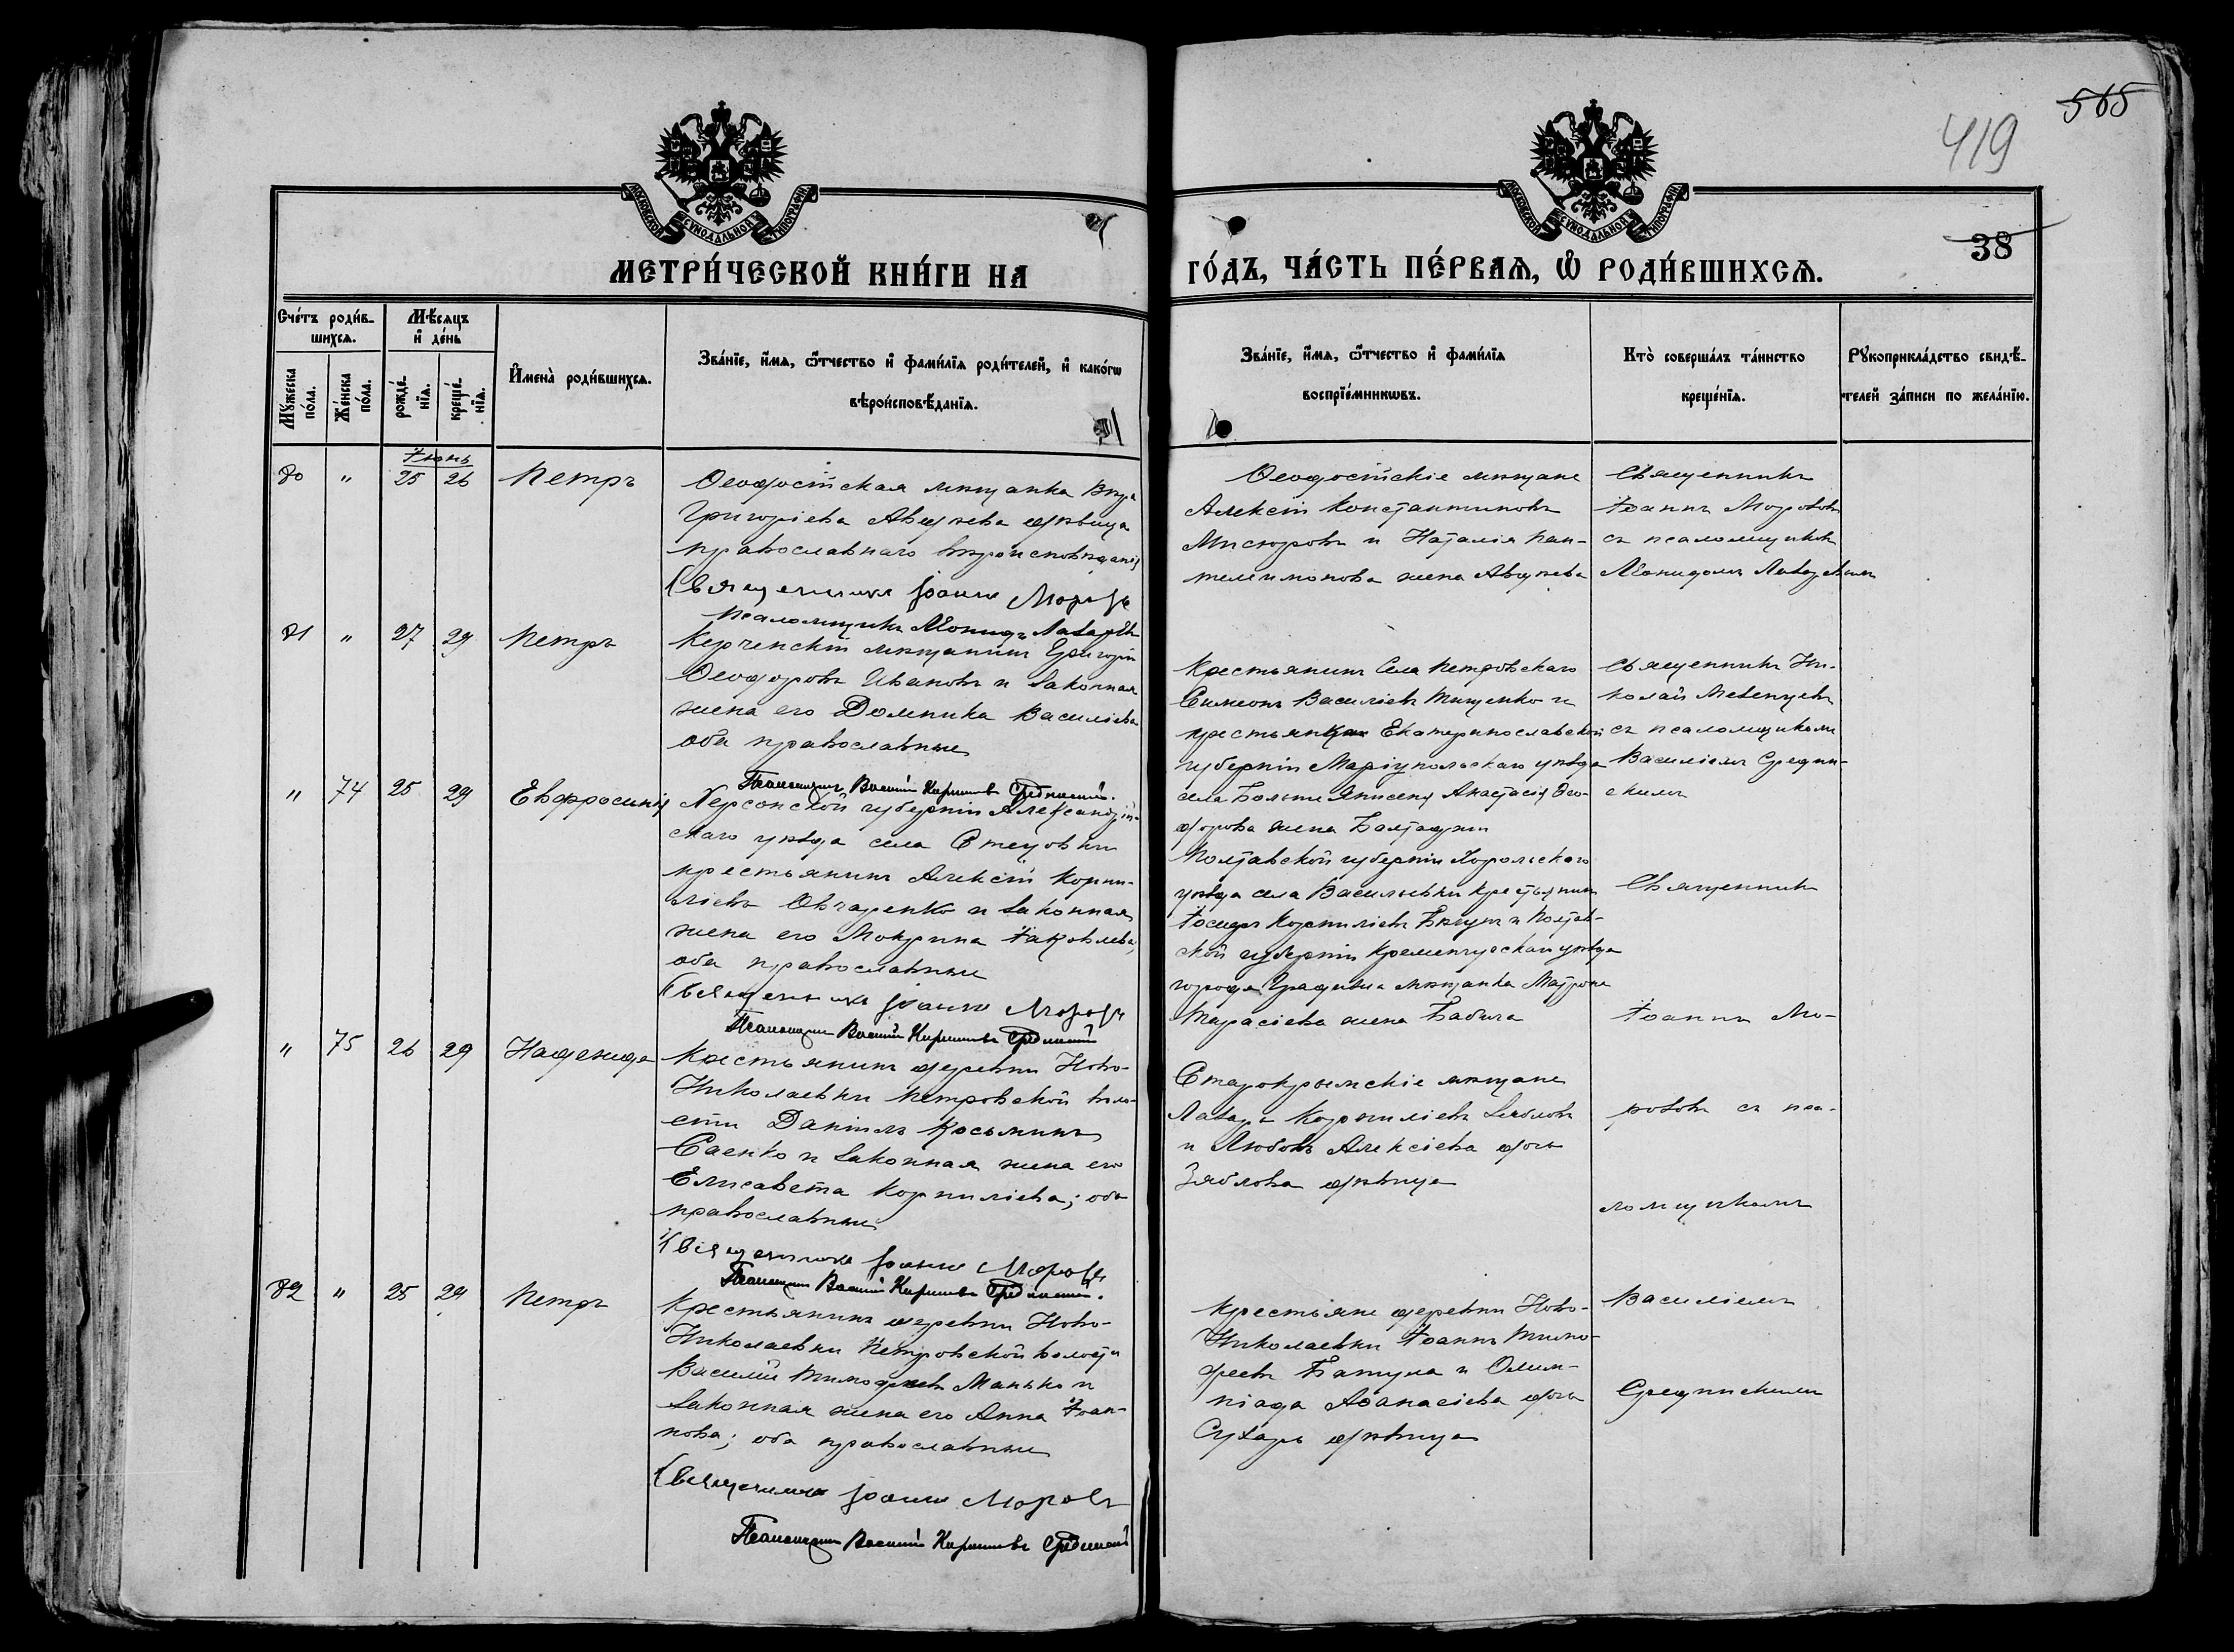 565
419
38
МЕТРИ́ЧЕСКОЙ КНИ́ГИ НА
ГО́ДЪ, ЧА́СТЬ ПЕ́РВАЯ, Ѡ҆ РОДИ́ВШИХСѦ.
Сче́тъ роди́в-
шихсѧ.
Мꙋ́жеска по́ла.
Же́нска по́ла.
Мѣ́сѧцъ
и҆ де́нь
рожде́-
нїѧ.
креще́-
нїѧ.
И҆мена̀ роди́вшихсѧ.
Зва́нїе, и҆́мѧ, ѻ҆́тчество и҆ фами́лїѧ роди́телей, и҆ како́гѡ
вѣроисповѣ́данїѧ.
Зва́нїе, и҆́мѧ, ѻ҆́тчество и҆ фами́лїѧ
воспрїе́мникѡвъ.
Кто̀ соверша́лъ та́инство
креще́нїѧ.
Рꙋкоприкла́дство свидѣ́-
телей за́писи по жела́нїю.
Іюнь
80 " 25 26 Петръ
Ѳеодосійская мѣщанка Вѣра
Григоріева Авдѣева дѣвица
православнаго вѣроисповѣданія
Священникъ Іоаннъ Морозовъ
Псаломщикъ Леонидъ
Ѳеодосійскіе мѣщане
Алексій Константиновъ
Мисюровъ и Наталія Пан-
телимонова жена Авдѣева
Священникъ
Іоаннъ Морозовъ
съ псаломщикомъ
Леонидомъ
81 " 27 29 Петръ
Керченскій мѣщанинъ Григорій
Ѳеодоровъ Ивановъ и законная
жена его Домника Василіева
оба православные
Псаломщикъ Василій Корниліевъ Срединскій.
Крестьянинъ села Петровскаго
Симеонъ Василіевъ Тищенко и
крестьянка Екатеринославской
губерніи Маріупольскаго уѣзда
села Больше Янисоля Анастасія Ѳео-
дорова жена
Священникъ Ни-
колай Мезенцевъ
съ псаломщикомъ
Василіемъ Средин-
скимъ
" 74 25 29 Евфросинія
Херсонской губерніи Александрій-
скаго уѣзда села Стецовки
крестьянинъ Алексій Корни-
ліевъ Овчаренко и законная
жена его Мокрина Іаковлева,
оба православные
Священникъ Іоаннъ Морозовъ
Псаломщикъ Василій Корниліевъ Срединскій
Полтавской губерніи Хорольскаго
уѣзда села Васильевки крестьянинъ
Іосифъ Корниліевъ и Полтав-
ской губерніи Кременчугскаго уѣзда
города Градижска мѣщанка Матрона
Тарасіева жена Бабича
Священникъ
Іоаннъ Мо-
" 75 26 29 Надежда
Крестьянинъ деревни Ново-
Николаевки Петровской воло-
сти Даніилъ Косьминъ
Саенко и законная жена его
Елисавета Корниліева; оба
православные
Священникъ Іоаннъ Морозовъ
Псаломщикъ Василій Корниліевъ Срединскій.
Старокрымскіе мѣщане
Лазарь Корниліевъ Зябловъ
и Любовь Алексіева дочь
Зяблова дѣвица
розовъ съ пса-
ломщикомъ
82 " 25 29 Петръ
Крестьянинъ деревни Ново-
Николаевки Петровской волости
Василій Тимоѳеевъ Манько и
законная жена его Анна Іоан-
нова; оба православные
Священникъ Іоаннъ Морозовъ
Псаломщикъ Василій Корниліевъ Срединскій
Крестьяне деревни Ново-
Николаевки Іоаннъ Тимо-
феевъ и Олим-
піада Аѳанасіева дочь
Сухарь дѣвица
Василіемъ
Срединскимъ